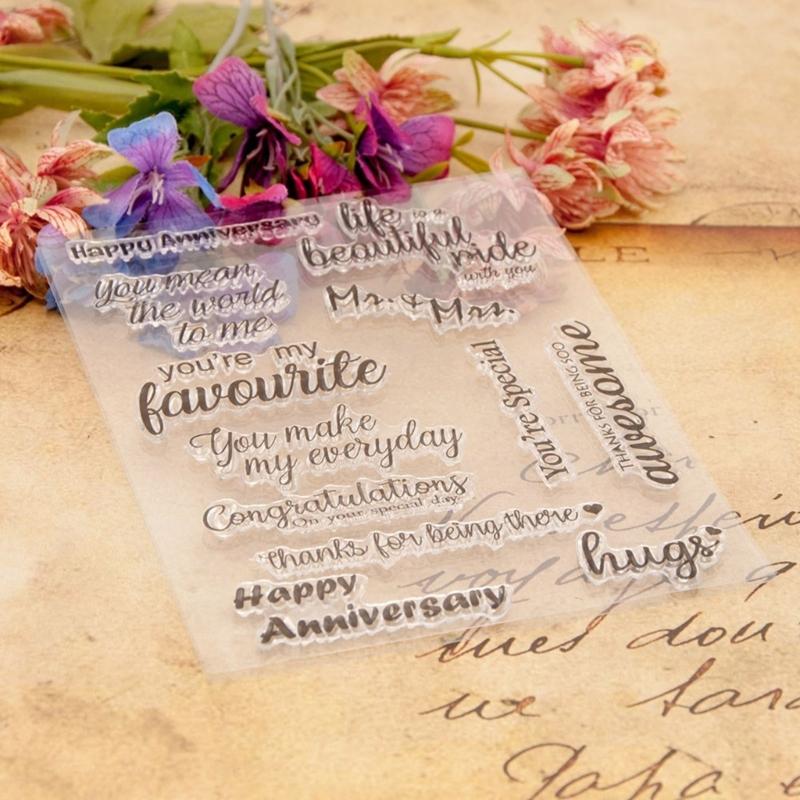 Happy Anniversary
life is a
beautiful ride
with you
you mean
the world
to me
Mr. & Mrs.
you're my
favourite
You're Special
THANKS FOR BEING SOO
awesome
You make
my everyday
Congratulations
On your special day
thanks for being there
hugs
Happy
Anniversary
LE
voya
ques dou
we
Paha